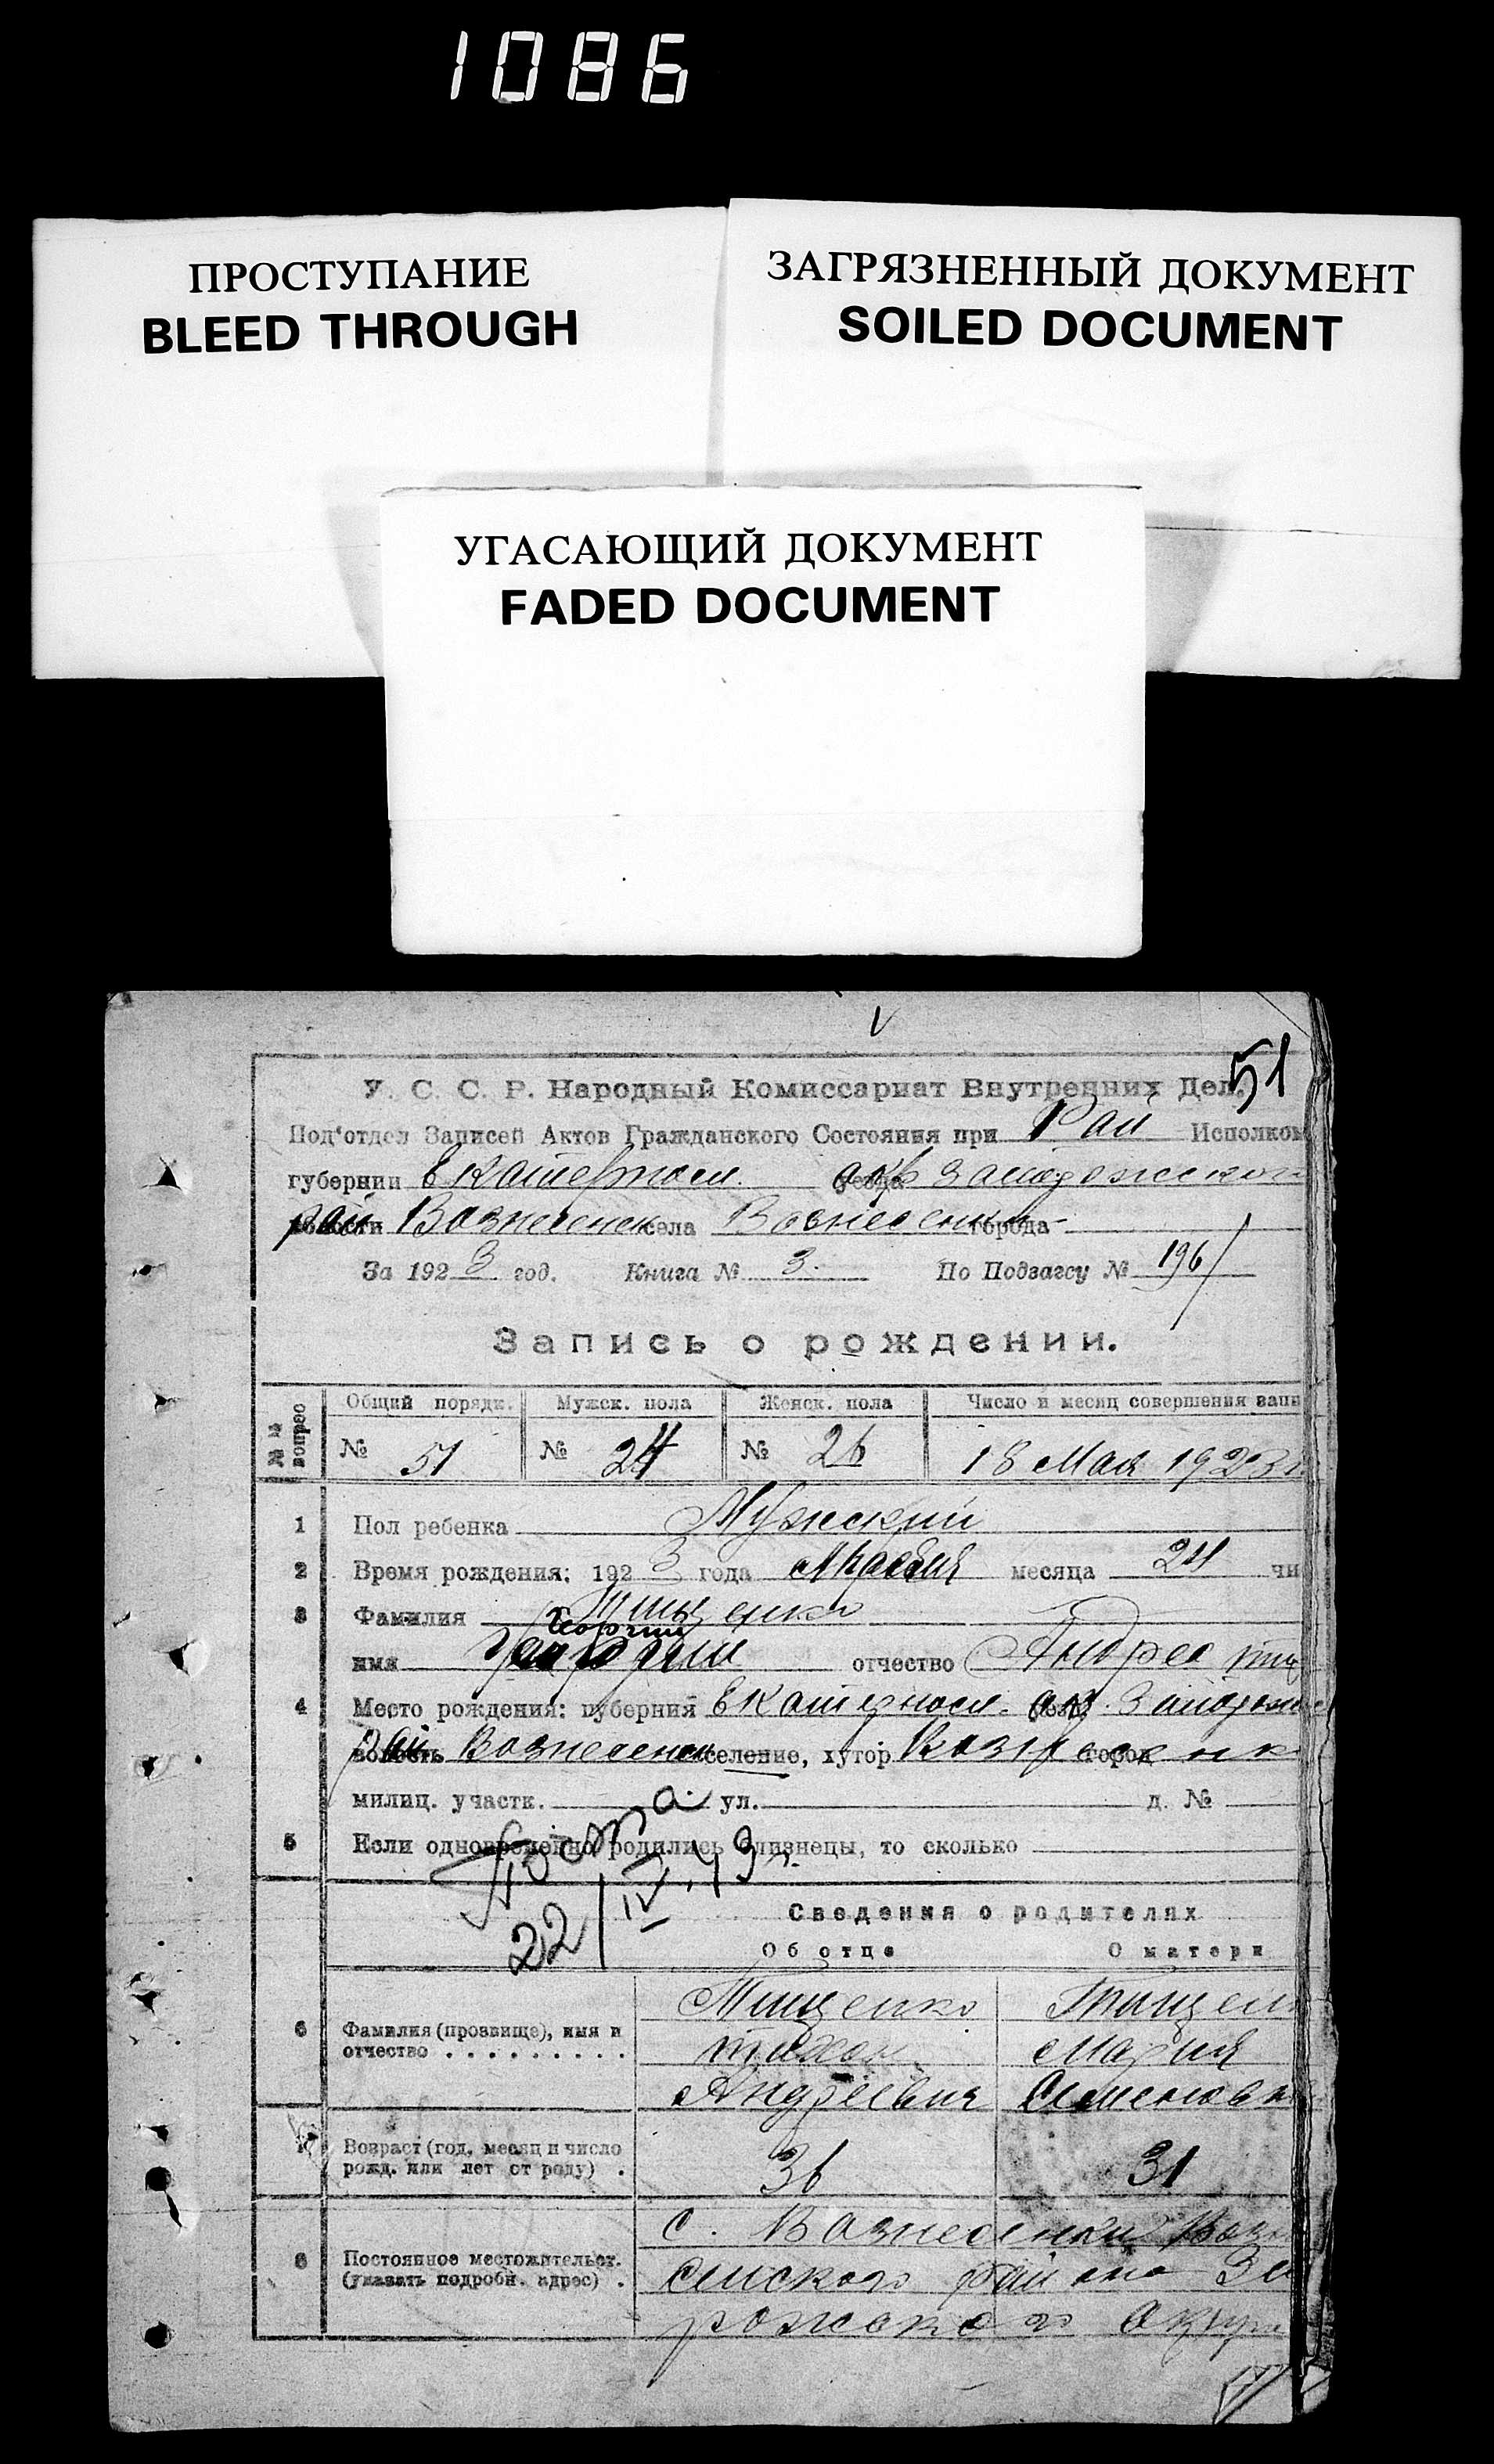 1086
ПРОСТУПАНИЕ
BLEED THROUGH
ЗАГРЯЗНЕННЫЙ ДОКУМЕНТ
SOILED DOCUMENT
УГАСАЮЩИЙ ДОКУМЕНТ
FADED DOCUMENT
51
У. С. С. Р. Народный Комиссариат Внутренних Дел.
Под'отдел Записей Актов Гражданского Состояния при Рай Исполком
губернии Екатеринослав.
Вознесенск села Вознесенки города -
За 1923 год. Книга № 3. По Подзагсу № 196
Запись о рождении.
№№ вопрос
Общий порядк. Мужск. пола Женск. пола Число и месяц совершения запи
№ 51 № 24 № 26 18 Мая 1923 г.
1 Пол ребенка Мужский
2 Время рождения: 1923 года месяца 24 чи
3 Фамилия Тищенко
Георгий
имя отчество
4 Место рождения: губерния Екатеринослав.
рай Вознесенск селение, хутор город
милиц. участк. ул. д. №
5 Если одновременно родились близнецы, то сколько
22/IV.43 г.
Сведения о родителях
Об отце О матери
6 Фамилия (прозвище), имя и отчество
Тищенко Тищен
Тихон Мария
Андреевич Семеновн
7 Возраст (год, месяц и число рожд. или лет от роду) . 36 31
8 Постоянное местожительст. (указать подробн. адрес) .
с. Вознесенки Возн
сенского района За
рожского округа